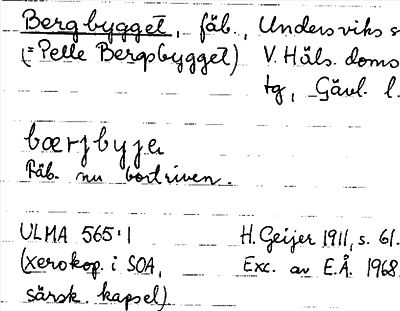 Bergbygget, fäb., Undersviks s
(= Pelle Bergsbygget) V. Häls. doms
tg, Gävl. l.
bærjbyjə
Fäb. nu bortriven.
ULMA 565:1 H. Geijer 1911, s. 61.
(xerokop. i SOA, Exc. av E.Å. 1968
särsk. kapsel)